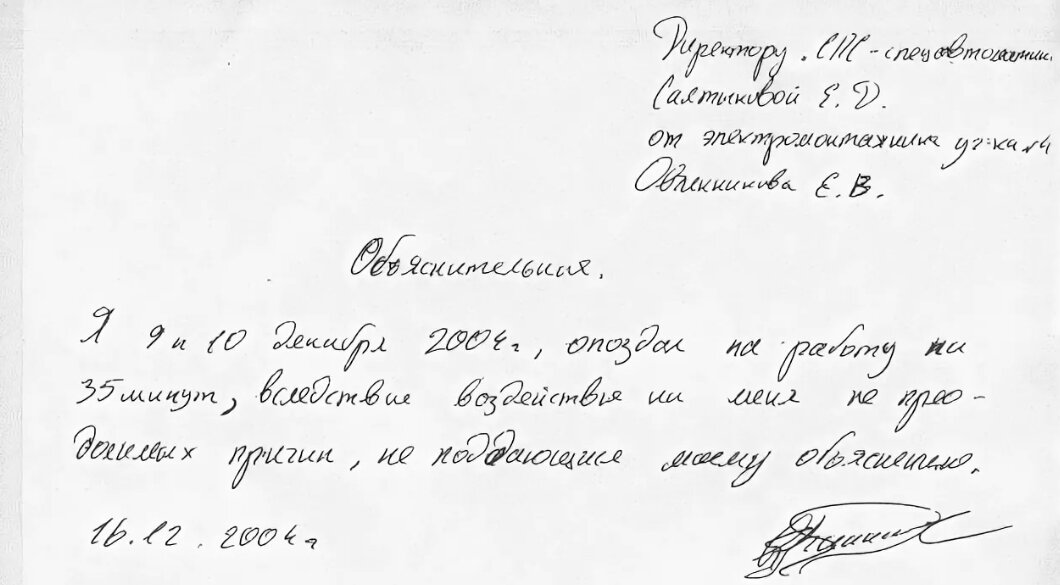 Директору СПС-спецавтоматик
Салтыковой Е. Д.
от электромонтажника уч-ка №4
Овчинникова Е. В.
Объяснительная.
Я 9 и 10 декабря 2004г, опоздал на работу на
35 минут, вследствие воздействия на меня не прео-
долимых причин, не поддающихся моему объяснению.
16.12.2004г